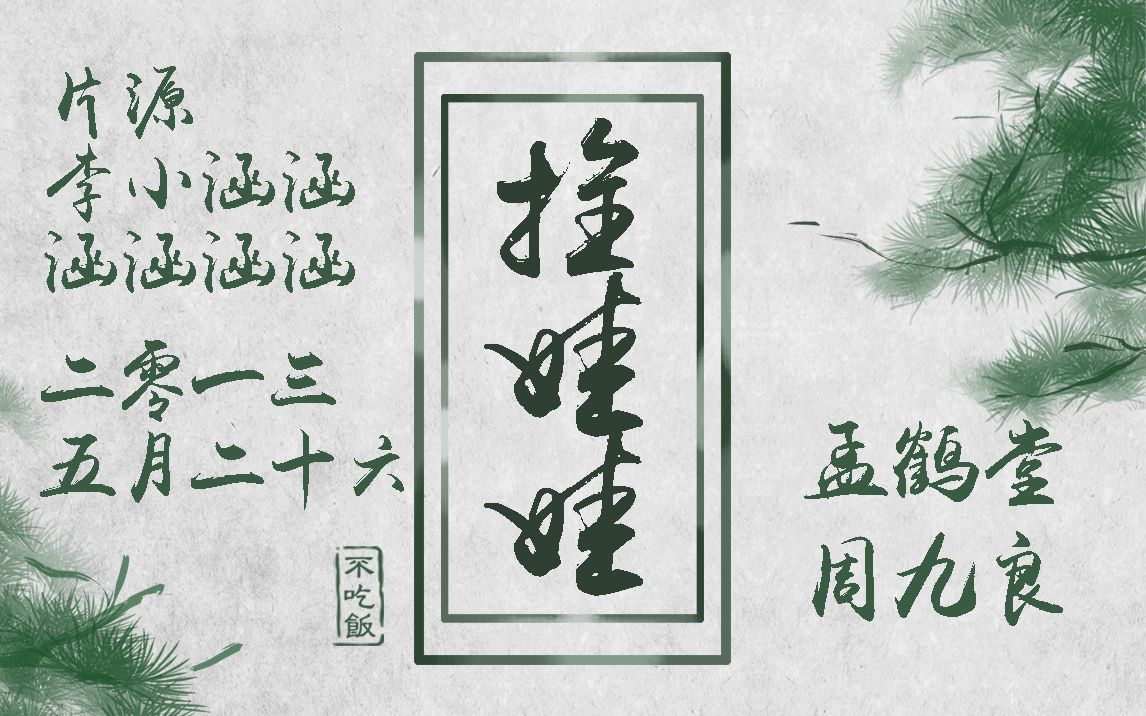 片源
李小涵涵
涵涵涵涵
二零一三
五月二十六
不吃飯
拴娃娃
孟鹤堂
周九良